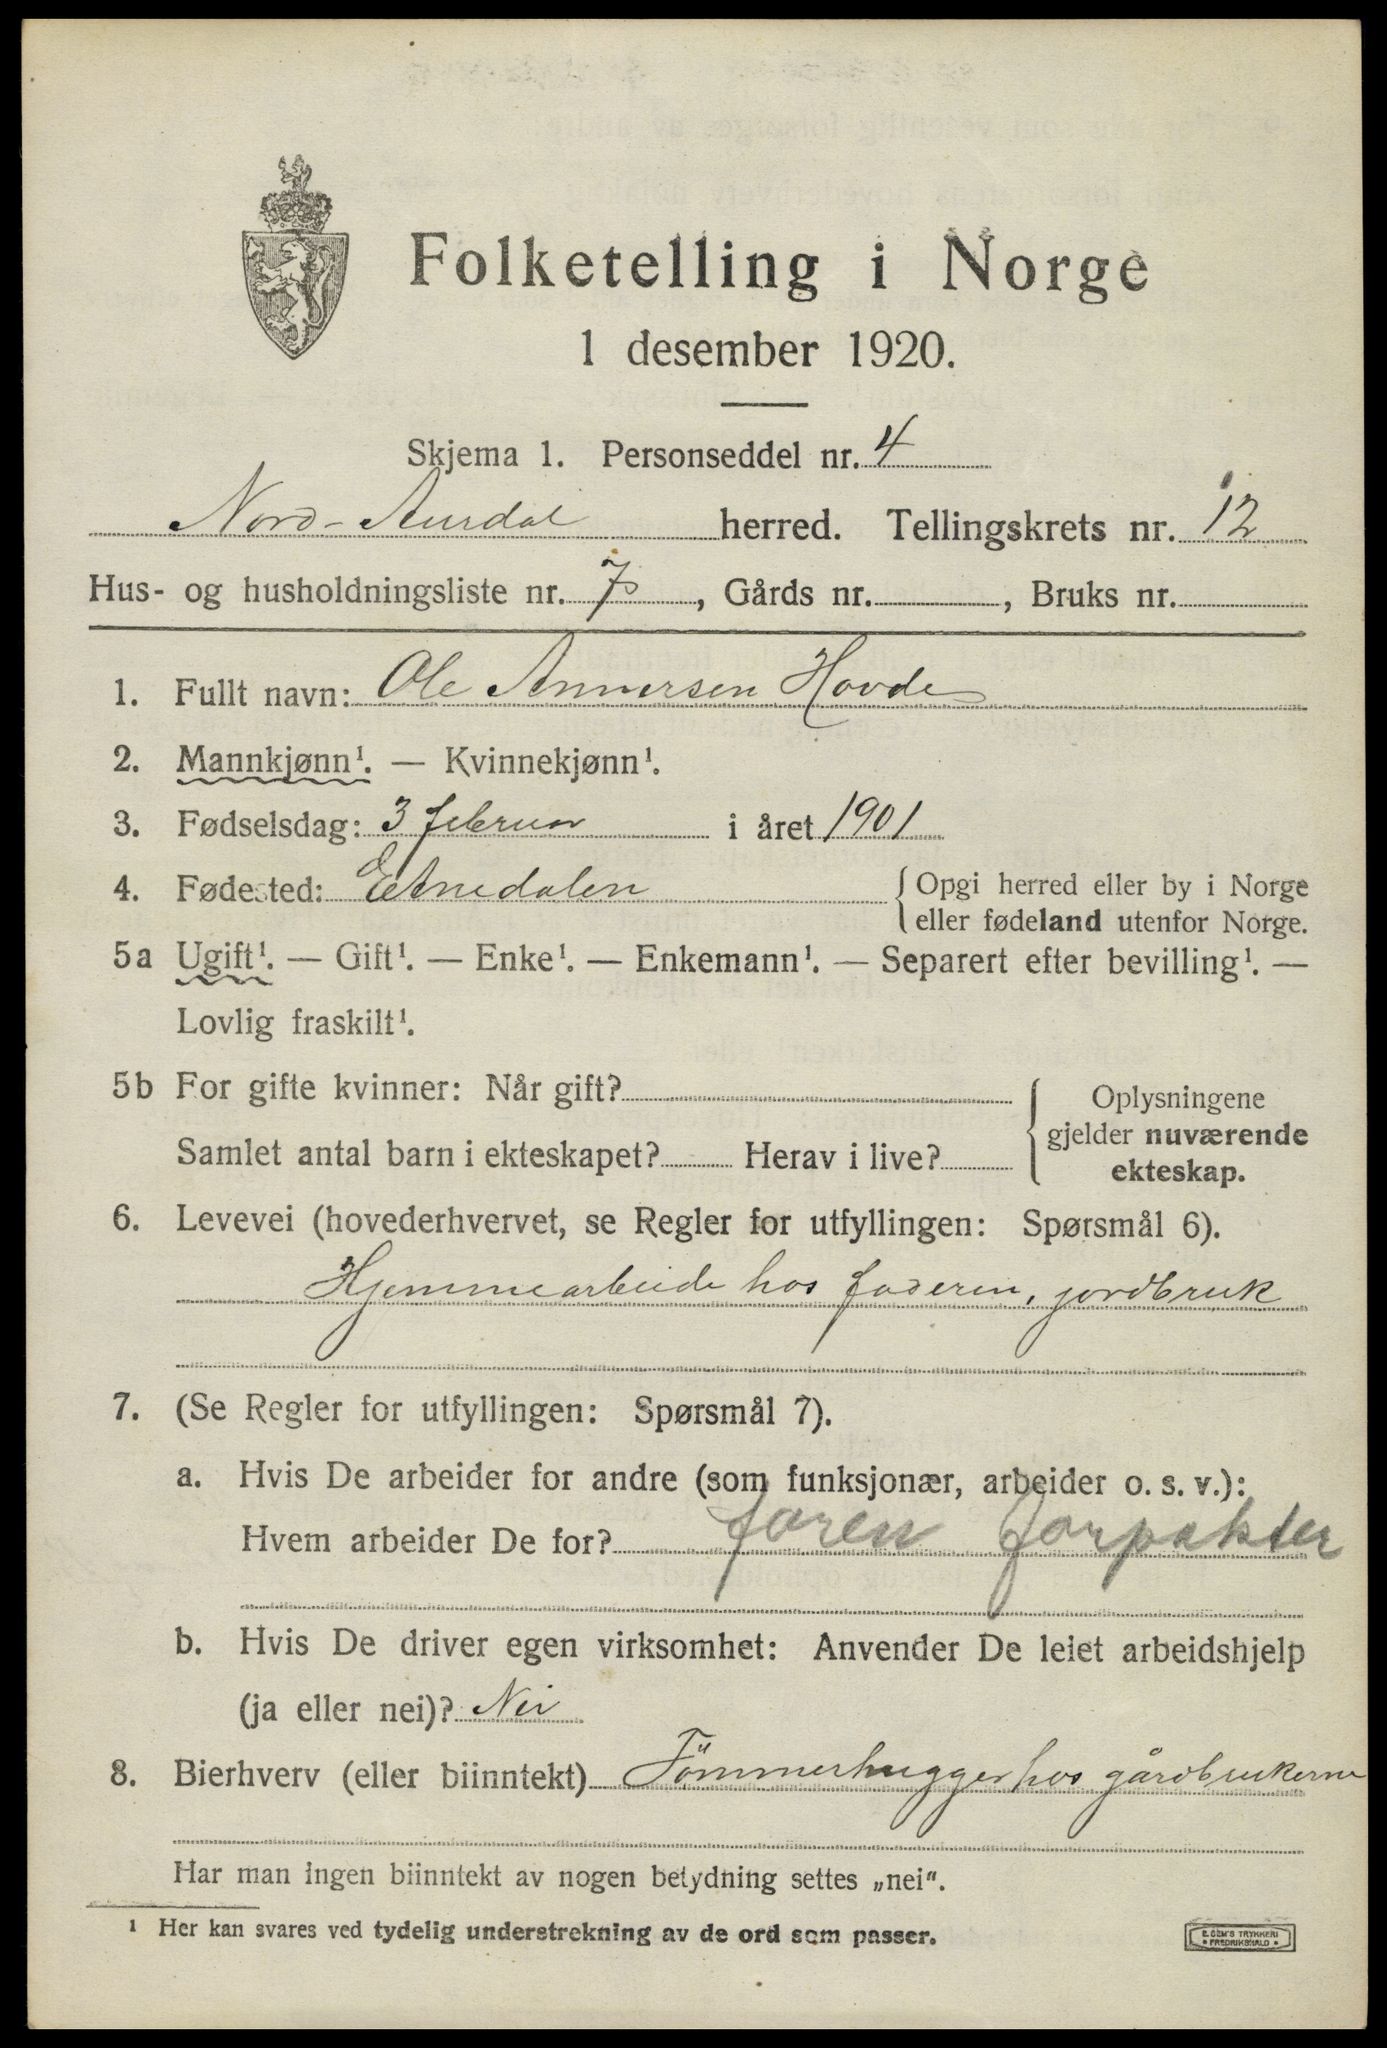 Folketelling i Norge
1 desember 1920.
Skjema 1. Personseddel nr. 4
Nord-Aurdal herred. Tellingskrets nr. 12
Hus- og husholdningsliste nr. 7, Gårds nr. , Bruks nr.
1. Fullt navn: Ole Andersen Hovde
2. Mannkjønn¹. — Kvinnekjønn¹.
3. Fødselsdag: 3 februar i året 1901
4. Fødested: Etnedalen { Opgi herred eller by i Norge
eller fødeland utenfor Norge.
5a Ugift¹. — Gift¹. — Enke¹. — Enkemann¹. — Separert efter bevilling¹. —
Lovlig fraskilt¹.
5b For gifte kvinner: Når gift?
Samlet antal barn i ekteskapet? Herav i live?
{ Oplysningene
gjelder nuværende
ekteskap.
6. Levevei (hovederhvervet, se Regler for utfyllingen: Spørsmål 6).
Hjemmearbeide hos faderen, jordbruk
7. (Se Regler for utfyllingen: Spørsmål 7).
a. Hvis De arbeider for andre (som funksjonær, arbeider o. s. v.):
Hvem arbeider De for? faren forpakter
b. Hvis De driver egen virksomhet: Anvender De leiet arbeidshjelp
(ja eller nei)? Nei
8. Bierhverv (eller biinntekt) Tömmerhugger hos gårdbrukerne
Har man ingen biinntekt av nogen betydning settes „nei".
¹ Her kan svares ved tydelig understrekning av de ord som passer.
E. SEM'S TRYKKERI
• FREDRIKSHALD •